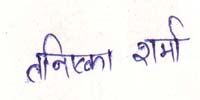 तनिष्का शर्मा